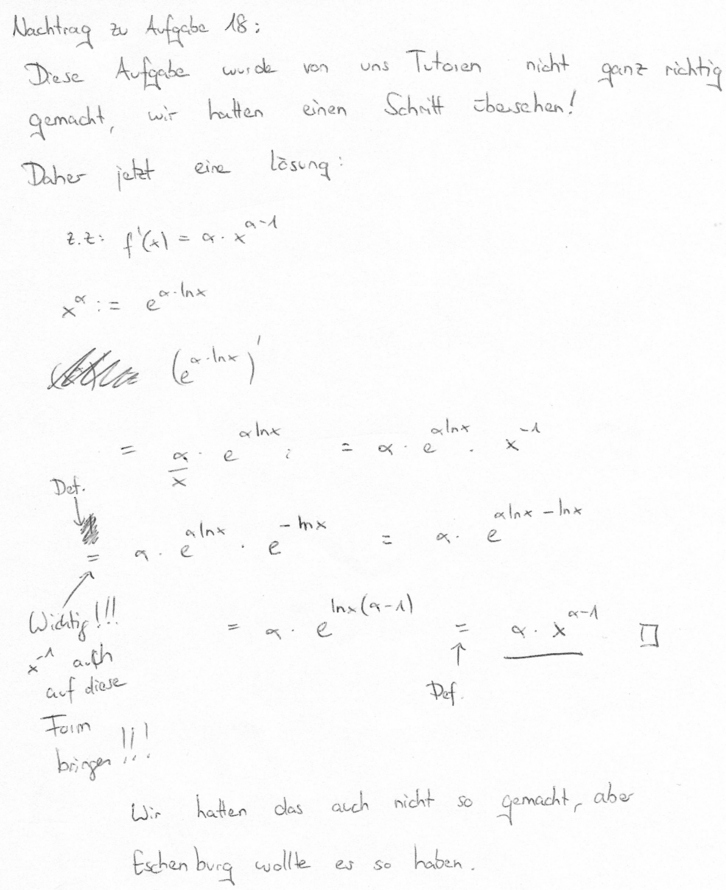 Nachtrag zu Aufgabe 18:
Diese Aufgabe wurde von uns Tutoren nicht ganz richtig
gemacht, wir hatten einen Schritt übersehen!
Daher jetzt eine Lösung:
z.z: f'(x) = α · x^(α-1)
x^α := e^(α·lnx)
(e^(α·lnx))'
= α/x · e^(αlnx) ; = α · e^(αlnx) · x^(-1)
Def.
= α · e^(αlnx) · e^(-lnx) = α · e^(αlnx - lnx)
= α · e^(lnx(α-1)) = α · x^(α-1) □
Def.
Wichtig!!!
x^(-1) auch
auf diese
Form
bringen!!!
Wir hatten das auch nicht so gemacht, aber
Eschenburg wollte es so haben.